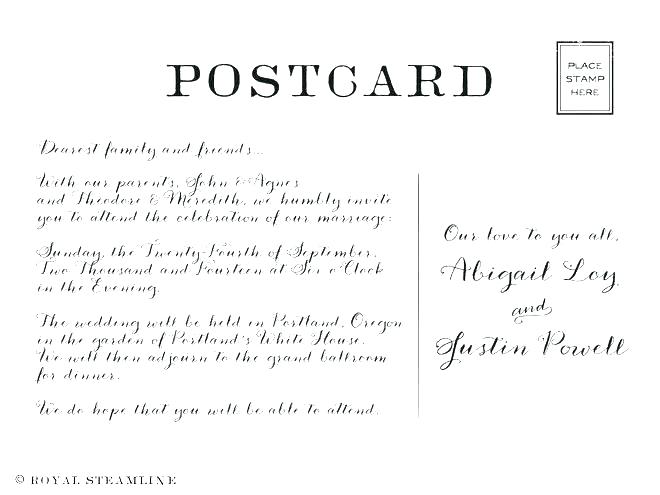 POSTCARD
PLACE
STAMP
HERE
Dearest family and friends...
With our parents, John & Agnes
and Theodore & Meredith, we humbly invite
you to attend the celebration of our marriage:
Sunday, the Twenty-Fourth of September,
Two Thousand and Fourteen at Six o'Clock
in the Evening.
The wedding will be held in Portland, Oregon
in the garden of Portland's White House.
We will then adjourn to the grand ballroom
for dinner.
We do hope that you will be able to attend.
Our love to you all,
Abigail Loy
and
Justin Powell
© ROYAL STEAMLINE